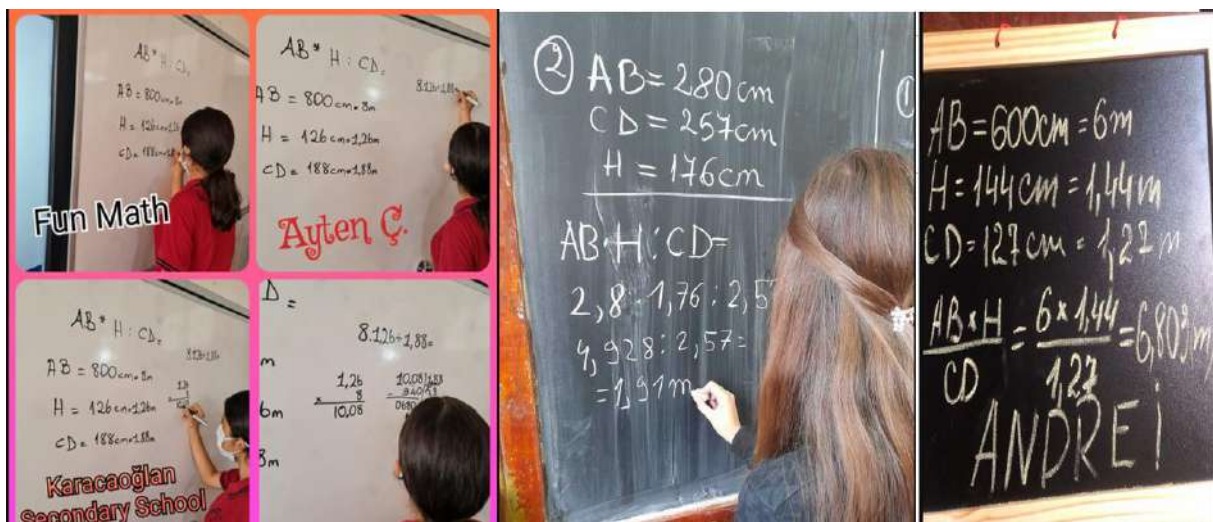 AB* H : CD=
AB = 800cm=8m
H = 126cm=1,26
CD= 188cm=1,8
Fun Math
AB* H : CD=
AB = 800cm=8m
H = 126cm=1,26m
CD= 188cm=1,88m
8.1,26÷1,88=
Ayten Ç.
AB* H : CD=
AB = 800cm=8m
H = 126cm=1,26m
CD= 188cm=1,88m
8.1,26÷1,88
Karacaoğlan
Secondary School
D =
8.1,26÷1,88=
m
6m
8m
1,26
× 8
10,08
10,08 1,88
- 940
0680
② AB=280cm
CD=257cm
H=176cm
AB·H:CD=
2,8·1,76:2,57
4,928:2,57=
=1,91m
AB=600cm=6m
H=144cm=1,44m
CD=127cm=1,27m
AB×H/CD = 6*1,44/1,27 =6,803m
ANDREI